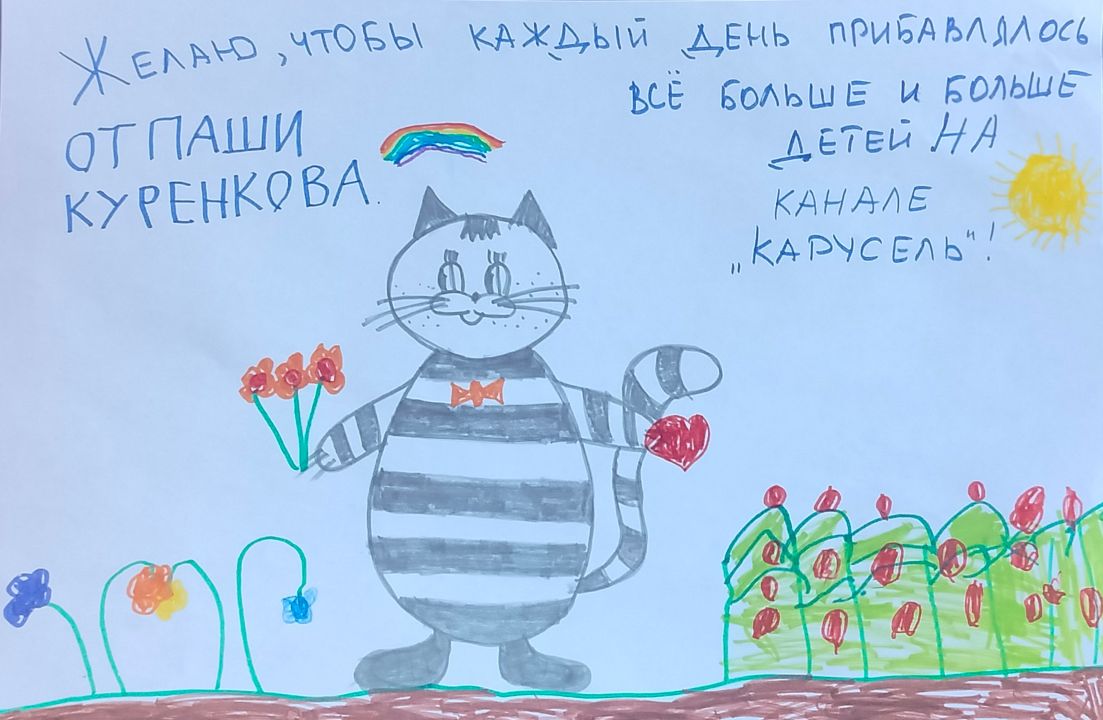 Желаю, чтобы каждый день прибавлялось
всё больше и больше
детей на
канале
„Карусель“!
от Паши
Куренкова.